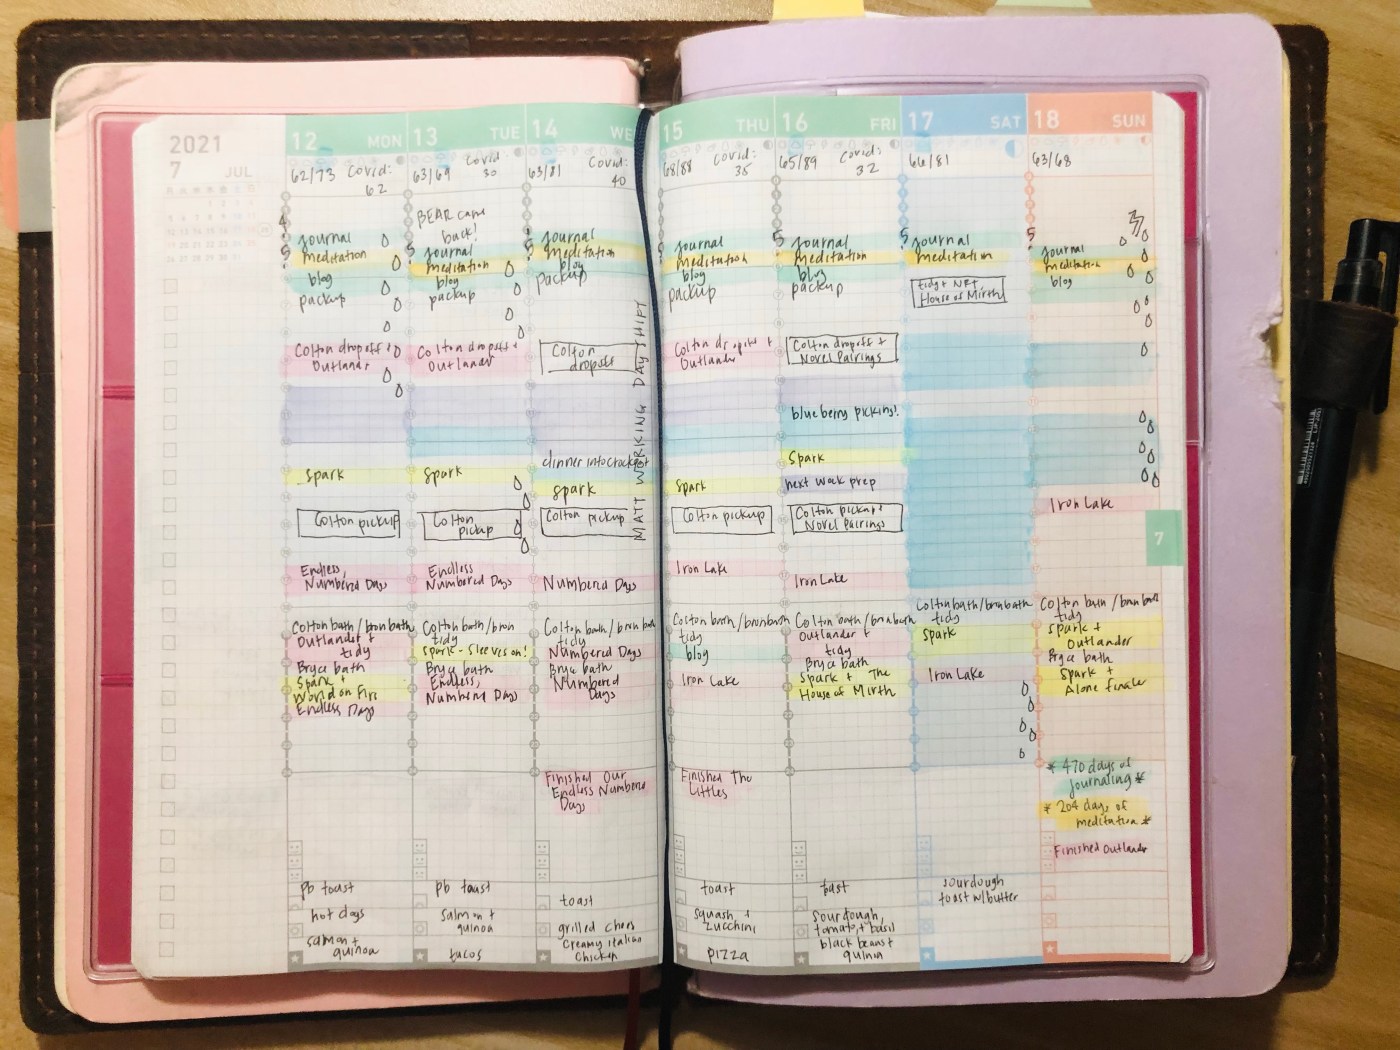 2021
7 JUL
12 MON
62/73 Covid:
62
journal
meditation
blog
packup
Colton dropoff +
Outlander
Spark
Colton pickup
Endless,
Numbered Days
Colton bath / bron bath
Outlander +
tidy
Bryce bath
Spark +
World on Fire
Endless Days
pb toast
hot dogs
salmon +
quinoa
13 TUE
63/69 Covid
30
BEAR came
back!
journal
meditation
blog
packup
Colton dropoff +
Outlander
Spark
Colton
pickup
Endless
Numbered Days
Colton bath / bron
tidy
Spark - Sleeves on!
Bryce bath
Endless,
Numbered Days
pb toast
salmon +
quinoa
tacos
14 WE
63/81 Covid:
40
journal
meditation
blog
packup
Colton
dropoff
MATT WORKING DAY SHIFT
dinner into crockpot
Spark
Colton pickup
Numbered Days
Colton bath / bron bath
tidy
Numbered Days
Bryce bath
Numbered
Days
Finished Our
Endless Numbered
Days
toast
grilled chees
creamy italian
chicken
15 THU
68/88 Covid:
35
journal
meditation
blog
packup
Colton dropoff +
Outlander
Spark
Colton pickup
Iron Lake
Colton bath/bron bath
tidy
blog
Iron Lake
Finished The
Littles
toast
squash +
zucchini
pizza
16 FRI
65/89 Covid:
32
journal
meditation
blog
packup
Colton dropoff +
Novel Pairings
blueberry picking!
Spark
next week prep
Colton pickup +
Novel Pairings
Iron Lake
Colton bath/bron bath
Outlander +
tidy
Bryce bath
Spark + The
House of Mirth
toast
sourdough,
tomato, + basil
black beans +
quinoa
17 SAT
66/81
journal
meditation
tidy + NP +
House of Mirth
Colton bath/bron bath
tidy
Spark
Iron Lake
sourdough
toast w/butter
18 SUN
63/68
journal
meditation
blog
Iron Lake
Colton bath / bron bath
tidy
Spark +
Outlander
Bryce bath
Spark +
Alone finale
* 470 days of
journaling *
* 204 days of
meditation *
Finished Outlander
7